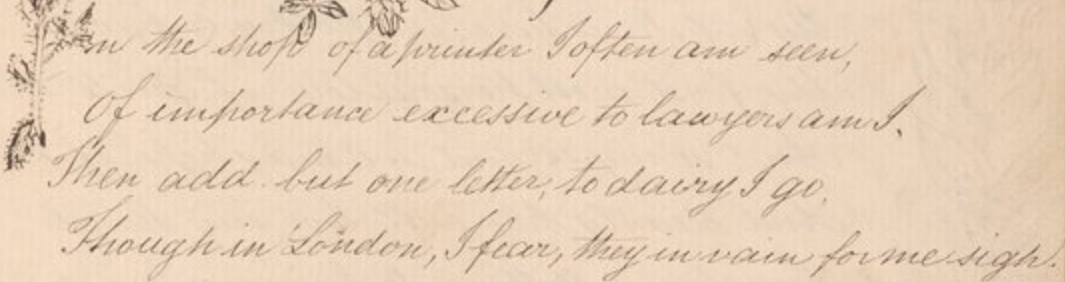 In the shop of a printer I often am seen,
Of importance excessive to lawyers am I.
Then add but one letter, to dairy I go.
Though in London, I fear, they in vain for me sigh.